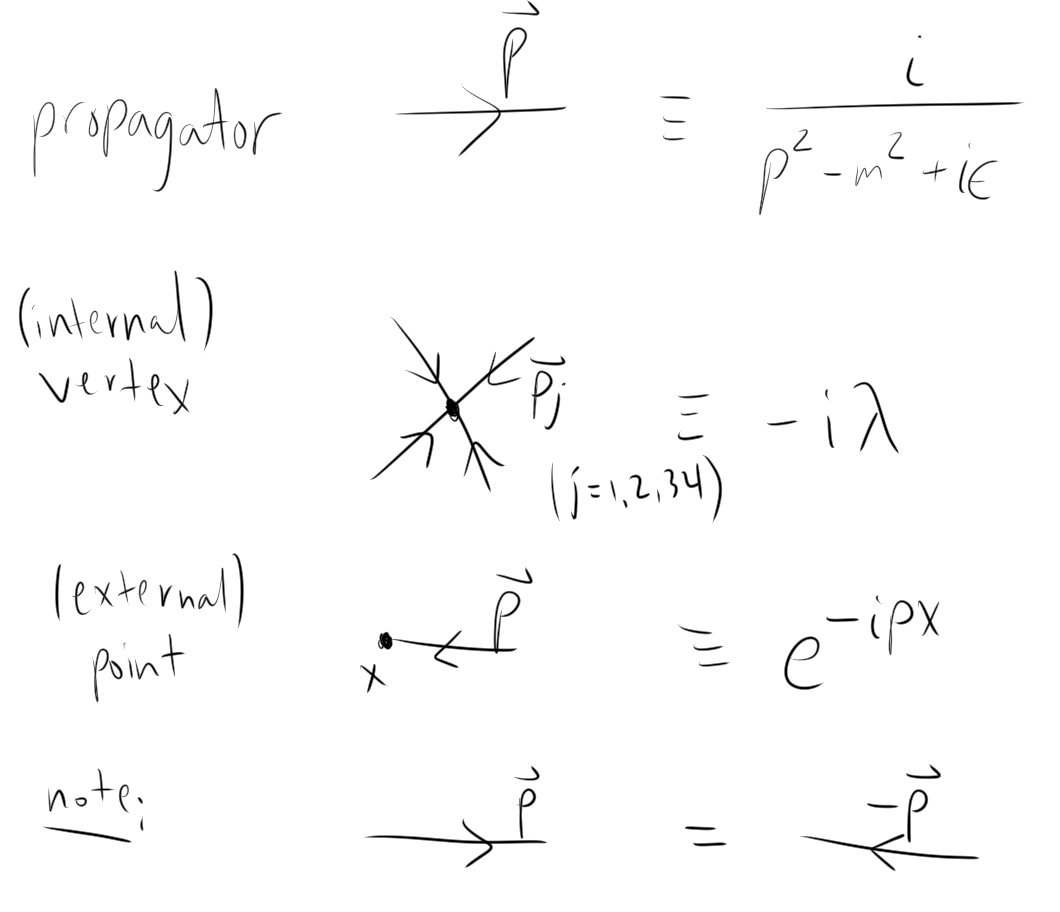 propagator p⃗ ≡ i / (p² - m² + iϵ)
(internal)
vertex p⃗j ≡ -iλ
(j=1,2,34)
(external)
point x p⃗ ≡ e^{-ipx}
note: p⃗ = -p⃗